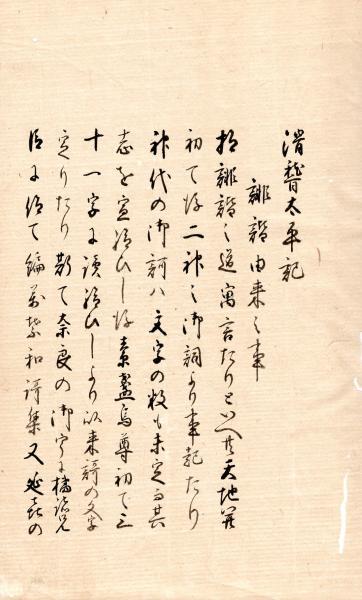 滑稽太平記
誹諧由来之事
抑誹諧之道寓言たりといへ共天地開
初て后二神之御詞より事起たり
神代の御謌ハ文字の数も未定而其
志を宣給ひし后素盞烏尊初て三
十一字に読給ひしより以来謌の文字
定りたり 扨て奈良の御宇に橘諸兄
臣に仰て編万葉和謌集又延喜の